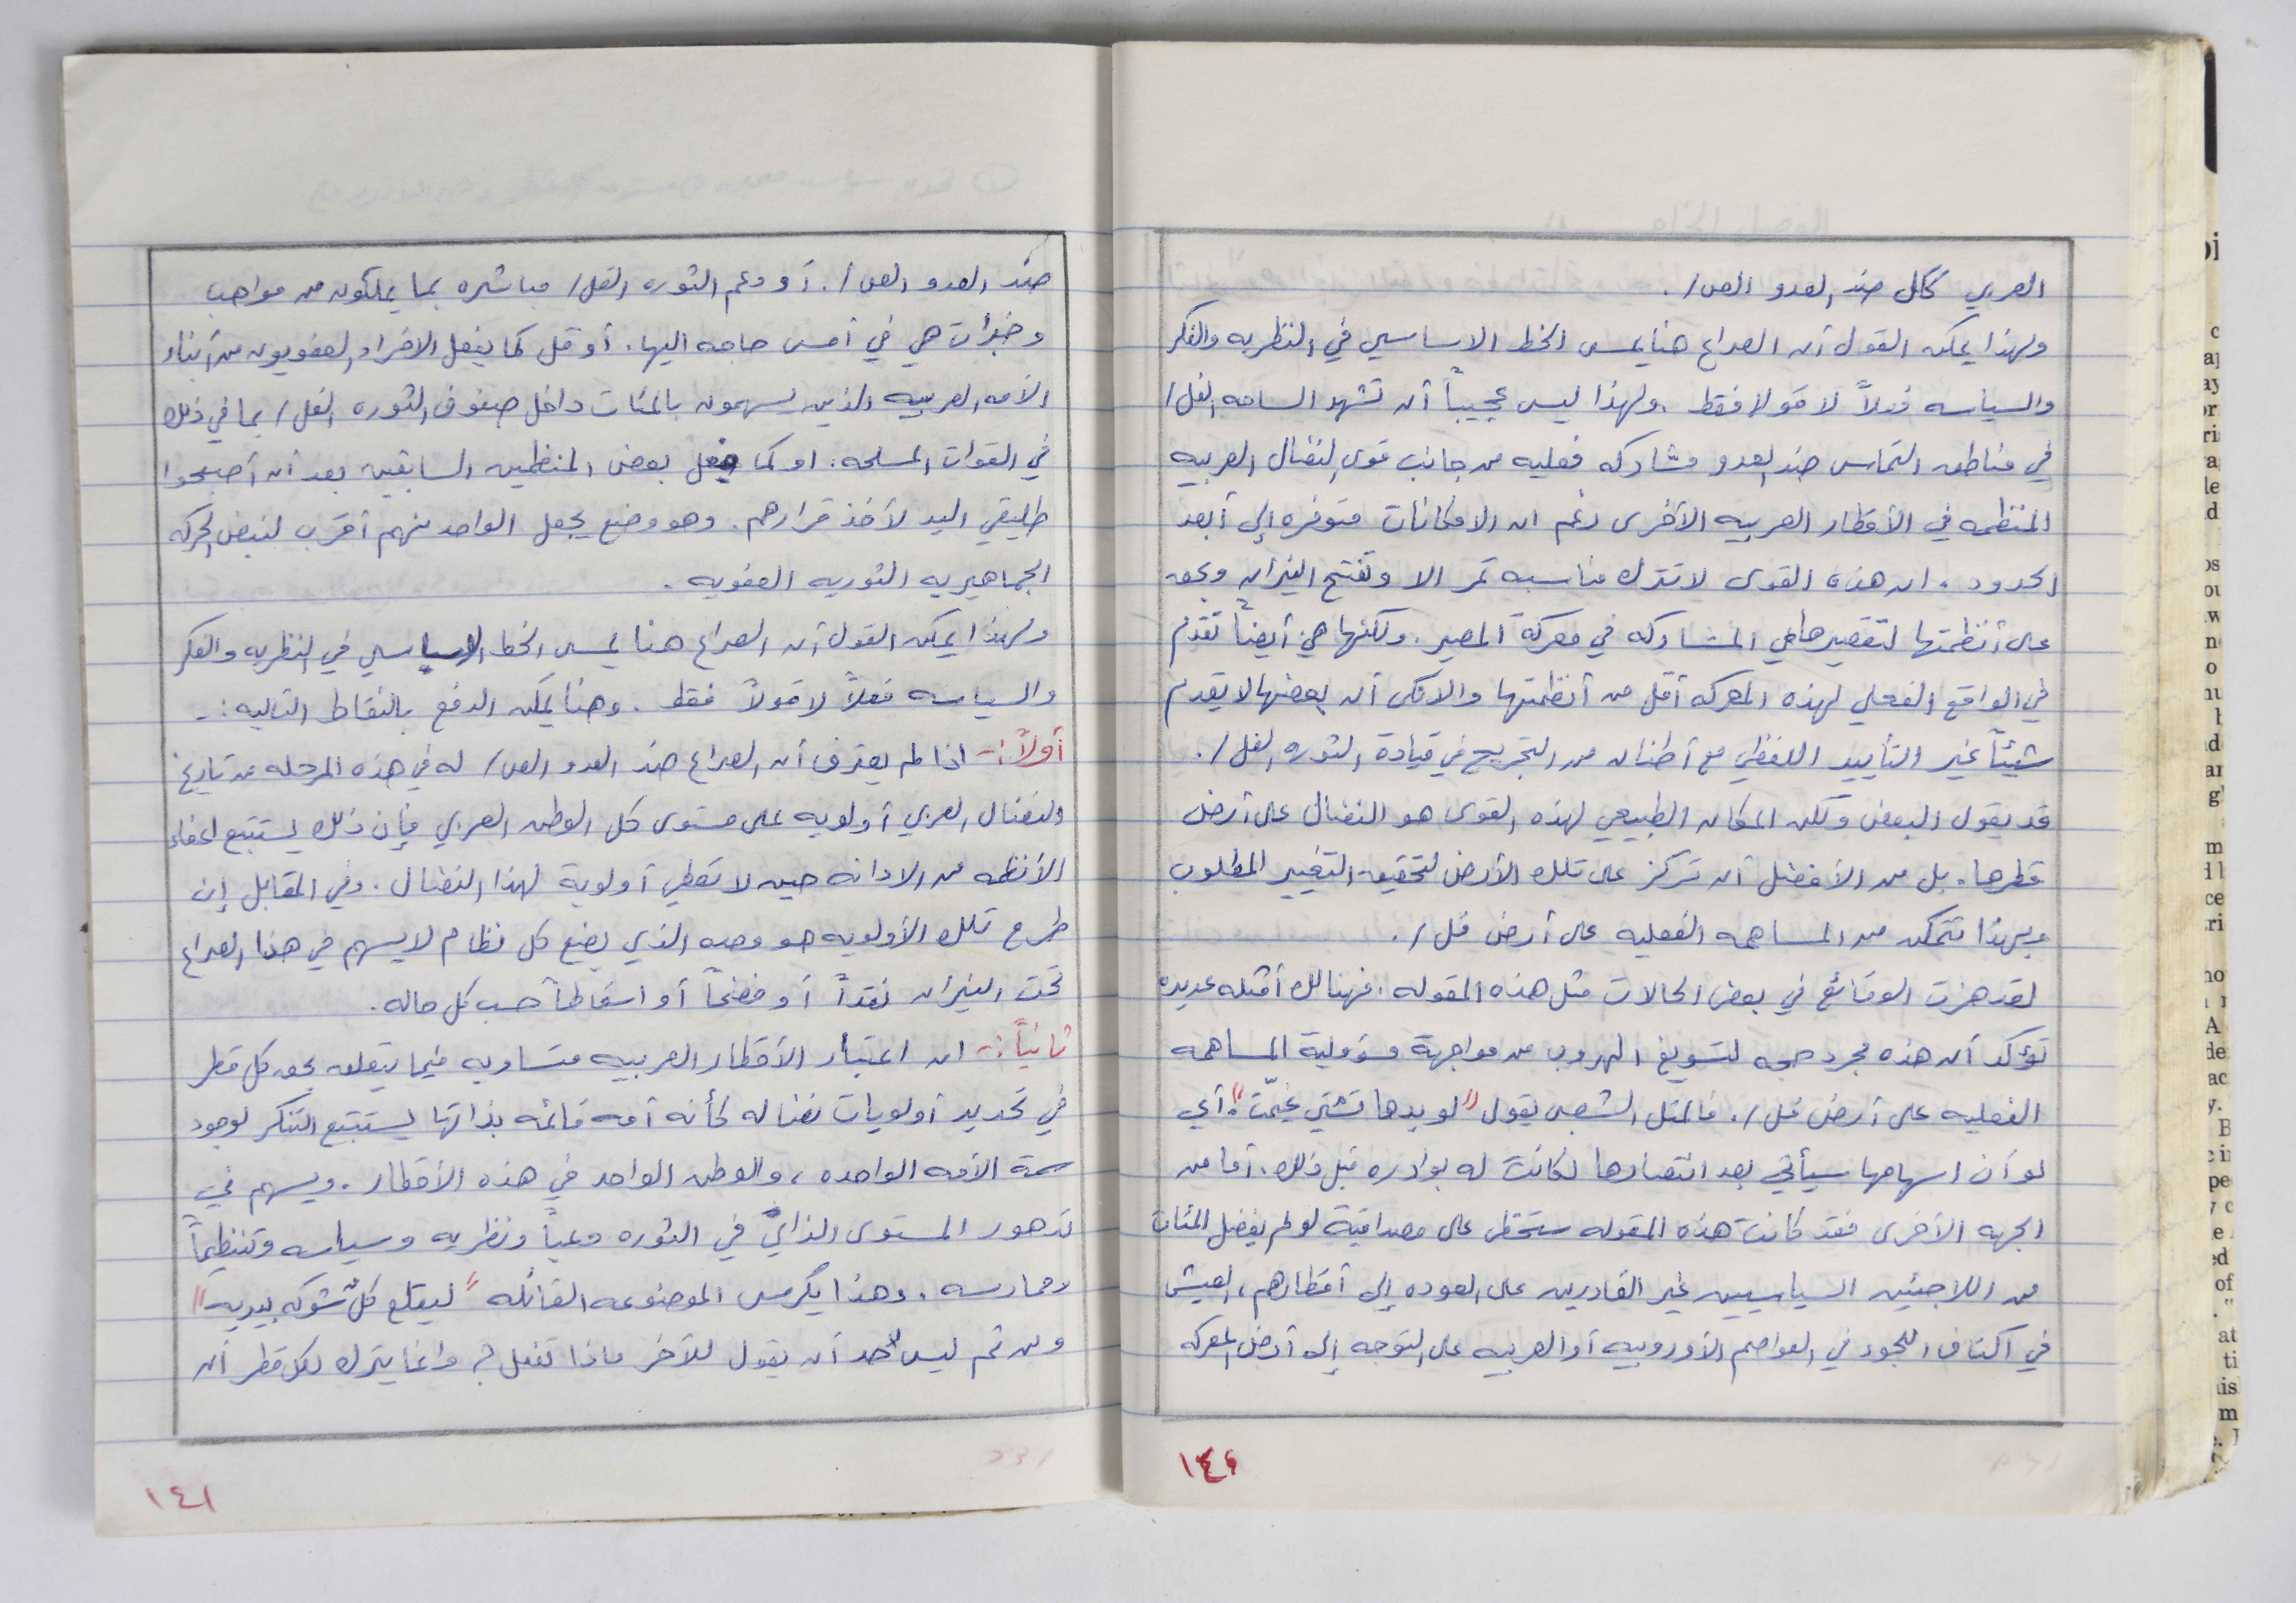 العربي ككل ضد العدو الص/.
ولهذا يمكن القول أن الصراع هنا يمس الخط الاساسي في النظريه والفكر
والسياسه فعلاً لا قولا فقط. ولهذا ليس عجيباً أن تشهد الساحه الفل/
في مناطق التماس ضد العدو مشاركه فعليه من جانب قوى النضال العربيه
المنظمه في الأقطار العربيه الأخرى رغم ان الامكانات متوفره إلى أبعد
الحدود. ان هذه القوى لا تترك مناسبه تمر الا وتفتح النيران وبحق
على أنظمتها لتقصيرها في المشاركه في معركة المصير. ولكنها هي أيضاً تقدم
في الواقع الفعلي لهذه المعركه أقل من أنظمتها والانكى أن بعضها لا يقدم
شيئاً غير التأييد اللفظي مع أطنان من التجريح في قيادة الثوره الفل/.
قد يقول البعض ولكن المكان الطبيعي لهذه القوى هو النضال على أرض
قطرها. بل من الأفضل أن تركز على تلك الأرض لتحقيق التغيير المطلوب
وبهذا تتمكن من المساهمه الفعليه على أرض فل/.
لقد هزت الوقائع في بعض الحالات مثل هذه المقوله. فهنالك أمثله عديده
تؤكد أن هذه مجرد حجه لتسويغ الهروب من مواجهة مسؤولية المساهمه
الفعليه على أرض فل/. فالمثل الشعبي يقول "لو بدها تشتي غيّمت". أي
لو أن اسهامها سيأتي بعد انتصارها لكانت له بوادره قبل ذلك. أما من
الجهه الأخرى فقد كانت هذه المقوله ستحظى على مصداقية لو لم يفضل المئات
من اللاجئين السياسيين غير القادرين على العوده إلى أقطارهم، العيش
في اكناف اللجوء في العواصم الأوروبيه أو العربيه على التوجه إلى أرض المعركه
١٤٠
ضد العدو الص/. أو دعم الثوره الفل/ مباشره بما يملكون من مواهب
وخبرات هي في أمس حاجه اليها. أو قل كما يفعل الافراد العفويون من أبناء
الأمه العربيه الذين يسهمون بالمئات داخل صفوف الثوره الفل/ بما في ذلك
في القوات المسلحه. او كما يفعل بعض المنظمين السابقين بعد أن أصبحوا
طليقي اليد لأخذ قرارهم. وهو وضع يجعل الواحد منهم أقرب لنبض الحركه
الجماهيريه الثوريه العفويه.
ولهذا يمكن القول أن الصراع هنا يمس الخط الاساسي في النظريه والفكر
والسياسه فعلاً لا قولاً فقط. وهنا يمكن الدفع بالنقاط التاليه:-
أولاً:- اذا لم يعترف أن الصراع ضد العدو الص/ له في هذه المرحله من تاريخ
النضال العربي أولويه على مستوى كل الوطن العربي فإن ذلك يستتبع اعفاء
الأنظمه من الادانه حين لا تعطي أولوية لهذا النضال. وفي المقابل إن
طرح تلك الأولويه هو وحده الذي يضع كل نظام لا يسهم في هذا الصراع
تحت النيران نقداً أو فضحاً أو اسقاطاً حسب كل حاله.
ثانياً:- ان اعتبار الأقطار العربيه متساويه فيما يتعلق بحق كل قطر
في تحديد أولويات نضاله كأنه أمه قائمه بذاتها يستتبع التنكر لوجود
سمة الأمه الواحده، والوطن الواحد في هذه الأقطار. ويسهم في
تدهور المستوى الذاتي في الثوره وعياً ونظريه وسياسه وتنظيماً
وممارسه. وهذا يكرس الموضوعه القائله "ليقلع كلٌ شوكه بيديه"
ومن ثم ليس لأحد أن يقول للآخر ماذا تفعل؟ وانما يترك لكل قطر أن
١٤١